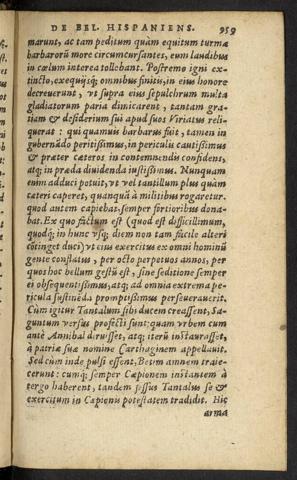 DE BEL. HISPANIENS. 959
marunt, ac tam peditum quàm equitum turmæ
barbarorũ more circumcursantes, eum laudibus
in cœlum interea tollebant. Postremo igni ex-
tincto, exequijsq; omnibus finitis, in eius honorẽ
decreuerunt, vt supra eius sepulchrum multa
gladiatorum paria dimicarent, tantam gra-
tiam & desiderium sui apud suos Viriatus reli-
querat: qui quamuis barbarus fuit, tamen in
gubernãdo peritissimus, in periculis cautissimus
& præter cæteros in contemnendis confidens,
atq; in præda diuidenda iustissimus. Nunquam
enim adduci potuit, vt vel tantillum plus quàm
cæteri caperet, quanquã à militibus rogaretur.
quod autem capiebat, semper fortioribus dona-
bat. Ex quo factum est (quod est difficillimum,
quodq; in hunc vsq; diem non tam facile alteri
cõtinget duci) vt eius exercitus ex omni hominũ
gente conflatus, per octo perpetuos annos, per
quos hoc bellum gestũ est, sine seditione semper
ei obsequentissimus, atq; ad omnia extrema pe-
ricula sustinẽda promptissimus perseuerauerit.
Cùm igitur Tantalum sibi ducem creassent, Sa-
guntum versus profecti sunt: quam vrbem cum
antè Annibal diruisset, atq; iterũ instaurasset,
à patriæ suæ nomine Carthaginem appellauit.
Sed cùm inde pulsi essent, Betim amnem traie-
cerunt: cumq; semper Cæpionem instantem à
tergo haberent, tandem fessus Tantalus se &
exercitum in Cæpionis potestatem tradidit. Hic
arma